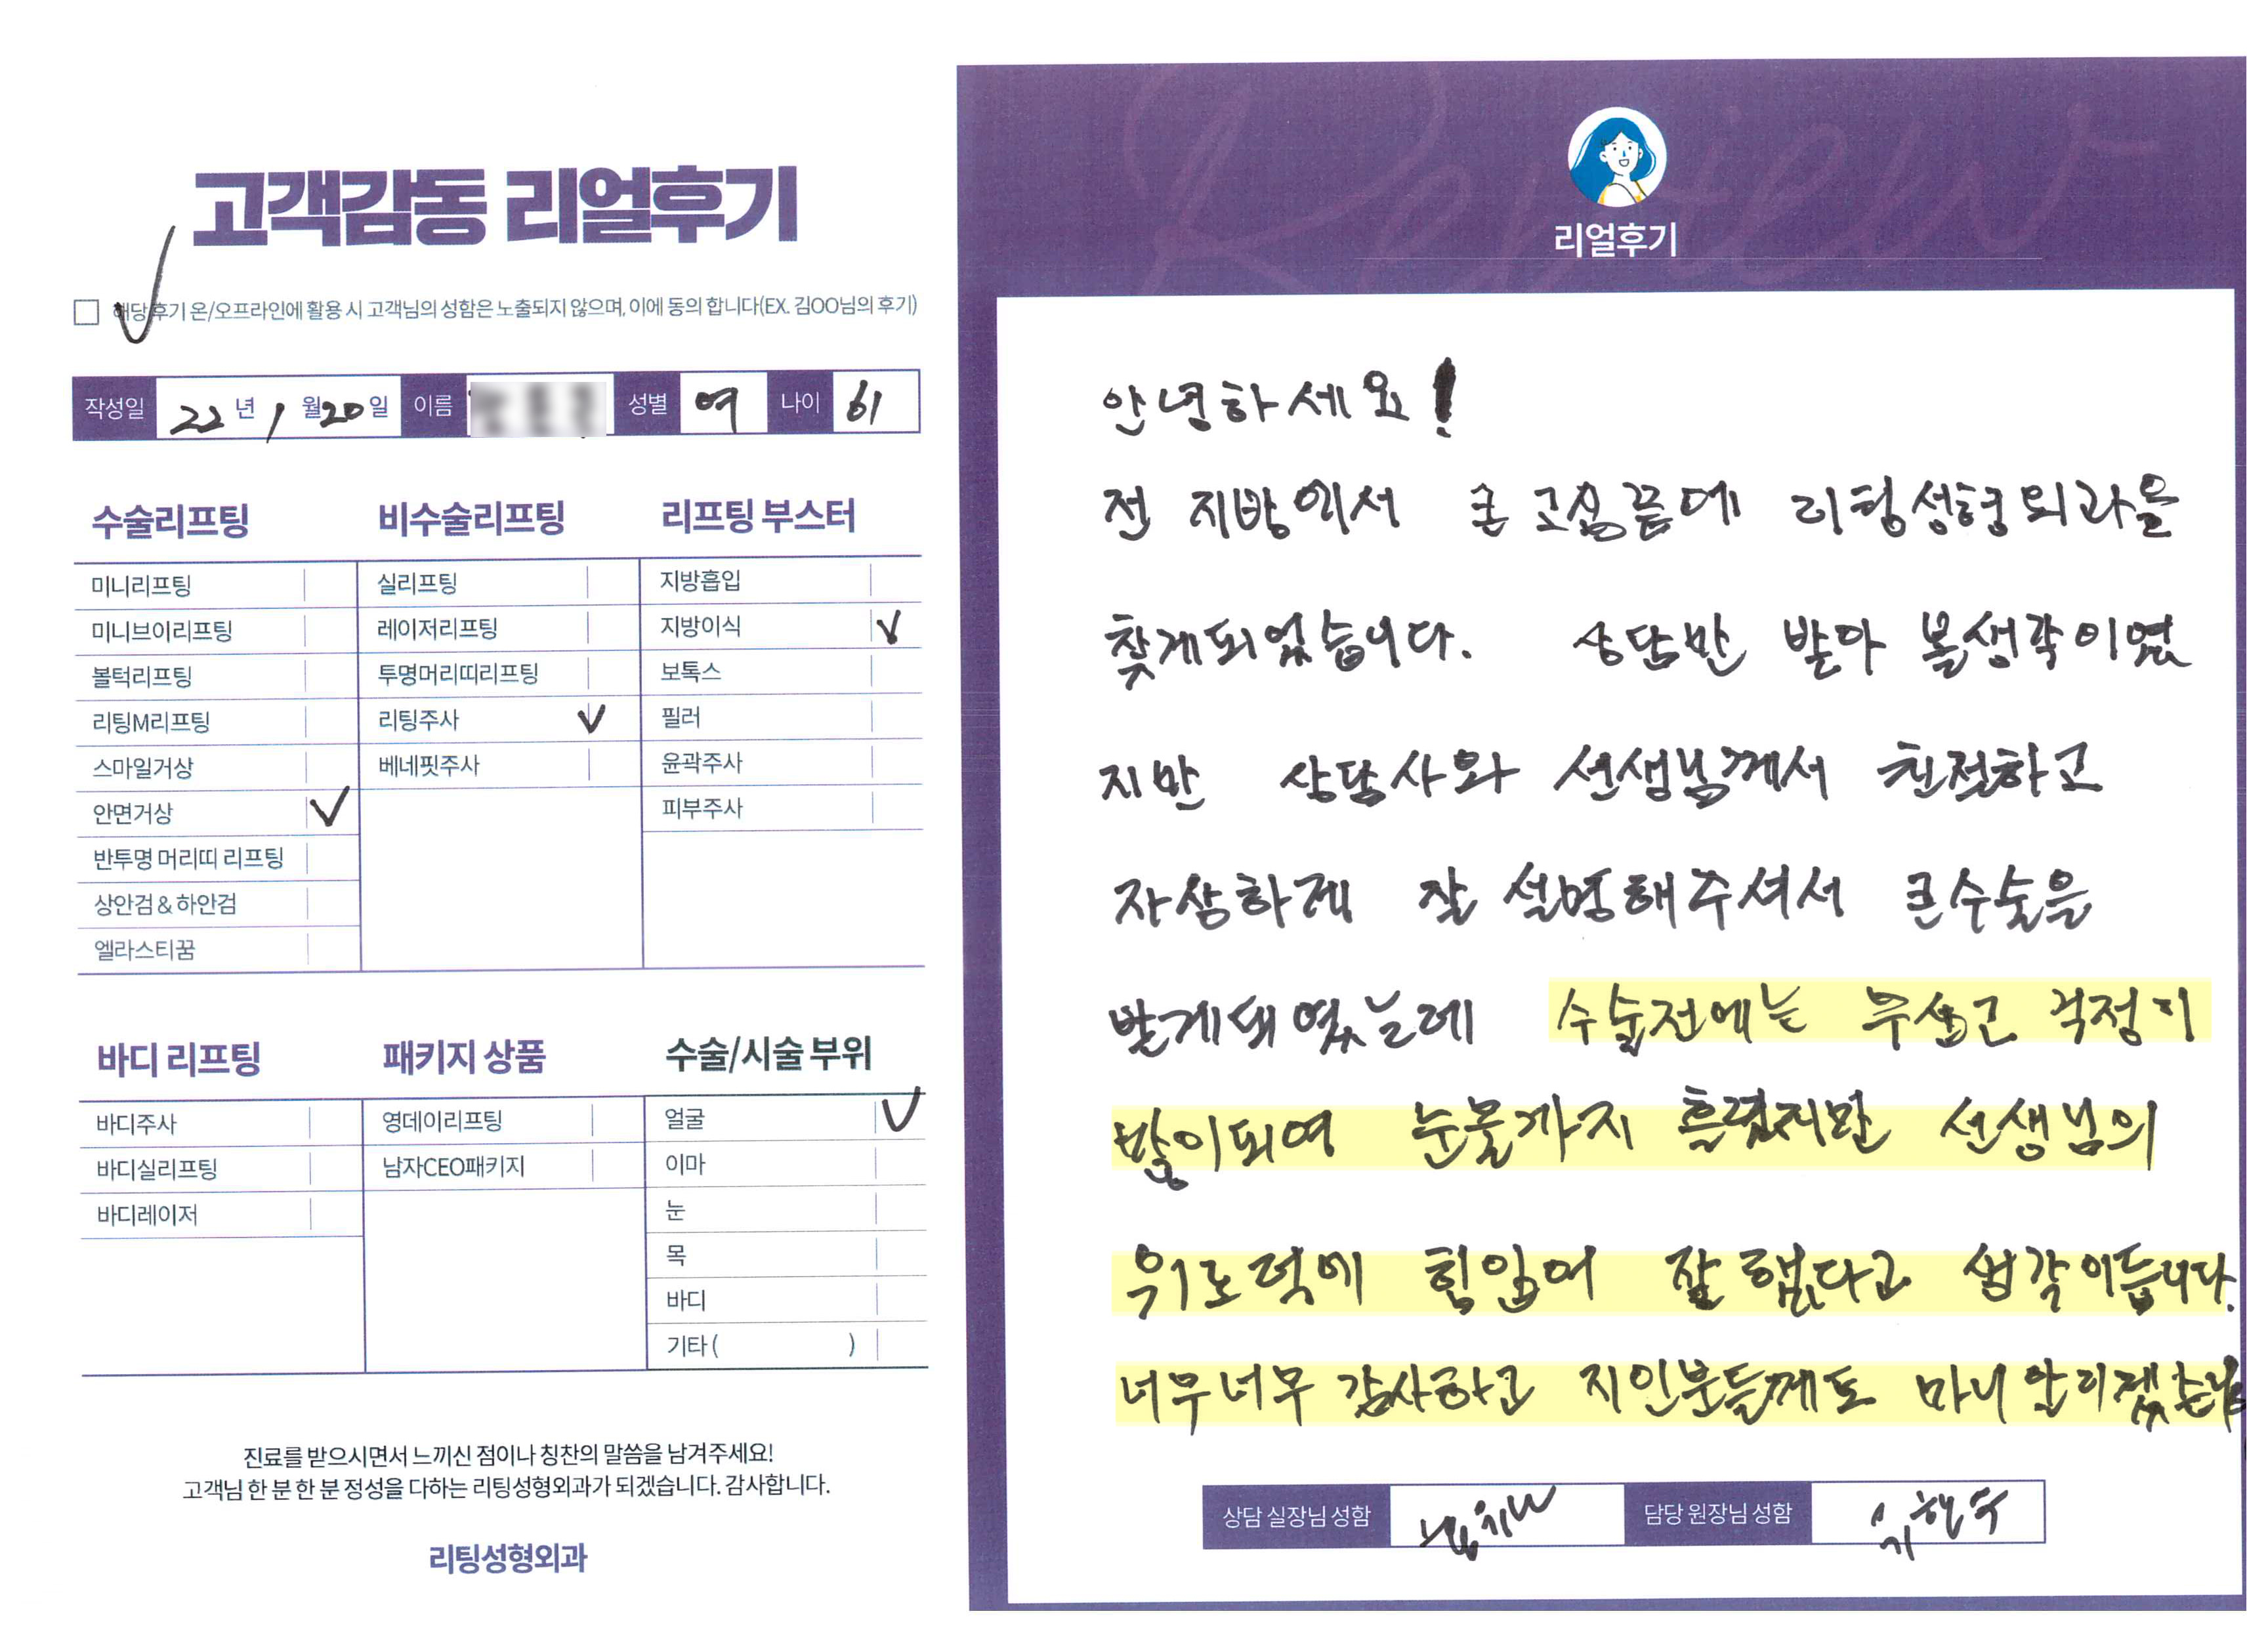 고객감동 리얼후기
해당 후기 온/오프라인에 활용 시 고객님의 성함은 노출되지 않으며, 이에 동의 합니다(EX. 김OO님의 후기)
작성일 22년 1월 20일 이름 성별 여 나이 61
수술리프팅
미니리프팅
미니브이리프팅
볼턱리프팅
리팅M리프팅
스마일거상
안면거상 ✓
반투명 머리띠 리프팅
상안검 & 하안검
엘라스티꿈
비수술리프팅
실리프팅
레이저리프팅
투명머리띠리프팅
리팅주사 ✓
베네핏주사
리프팅 부스터
지방흡입
지방이식 ✓
보톡스
필러
윤곽주사
피부주사
바디 리프팅
바디주사
바디실리프팅
바디레이저
패키지 상품
영데이리프팅
남자CEO패키지
수술/시술 부위
얼굴 ✓
이마
눈
목
바디
기타 ( )
진료를 받으시면서 느끼신 점이나 칭찬의 말씀을 남겨주세요!
고객님 한 분 한 분 정성을 다하는 리팅성형외과가 되겠습니다. 감사합니다.
리팅성형외과
Review
리얼후기
안녕하세요!
전 지방에서 큰 고심끝에 리팅성형외과을
찾게되었습니다. 상담만 받아 볼생각이였
지만 상담사와 선생님께서 친절하고
자상하게 잘 설명해주셔서 큰수술을
받게돼였는데 수술전에는 무섭고 걱정이
많이되여 눈물까지 흘렸지만 선생님의
위로덕에 힘입어 잘했다고 생각이듭니다.
너무너무 감사하고 지인분들께도 마니
상담 실장님 성함
담당 원장님 성함